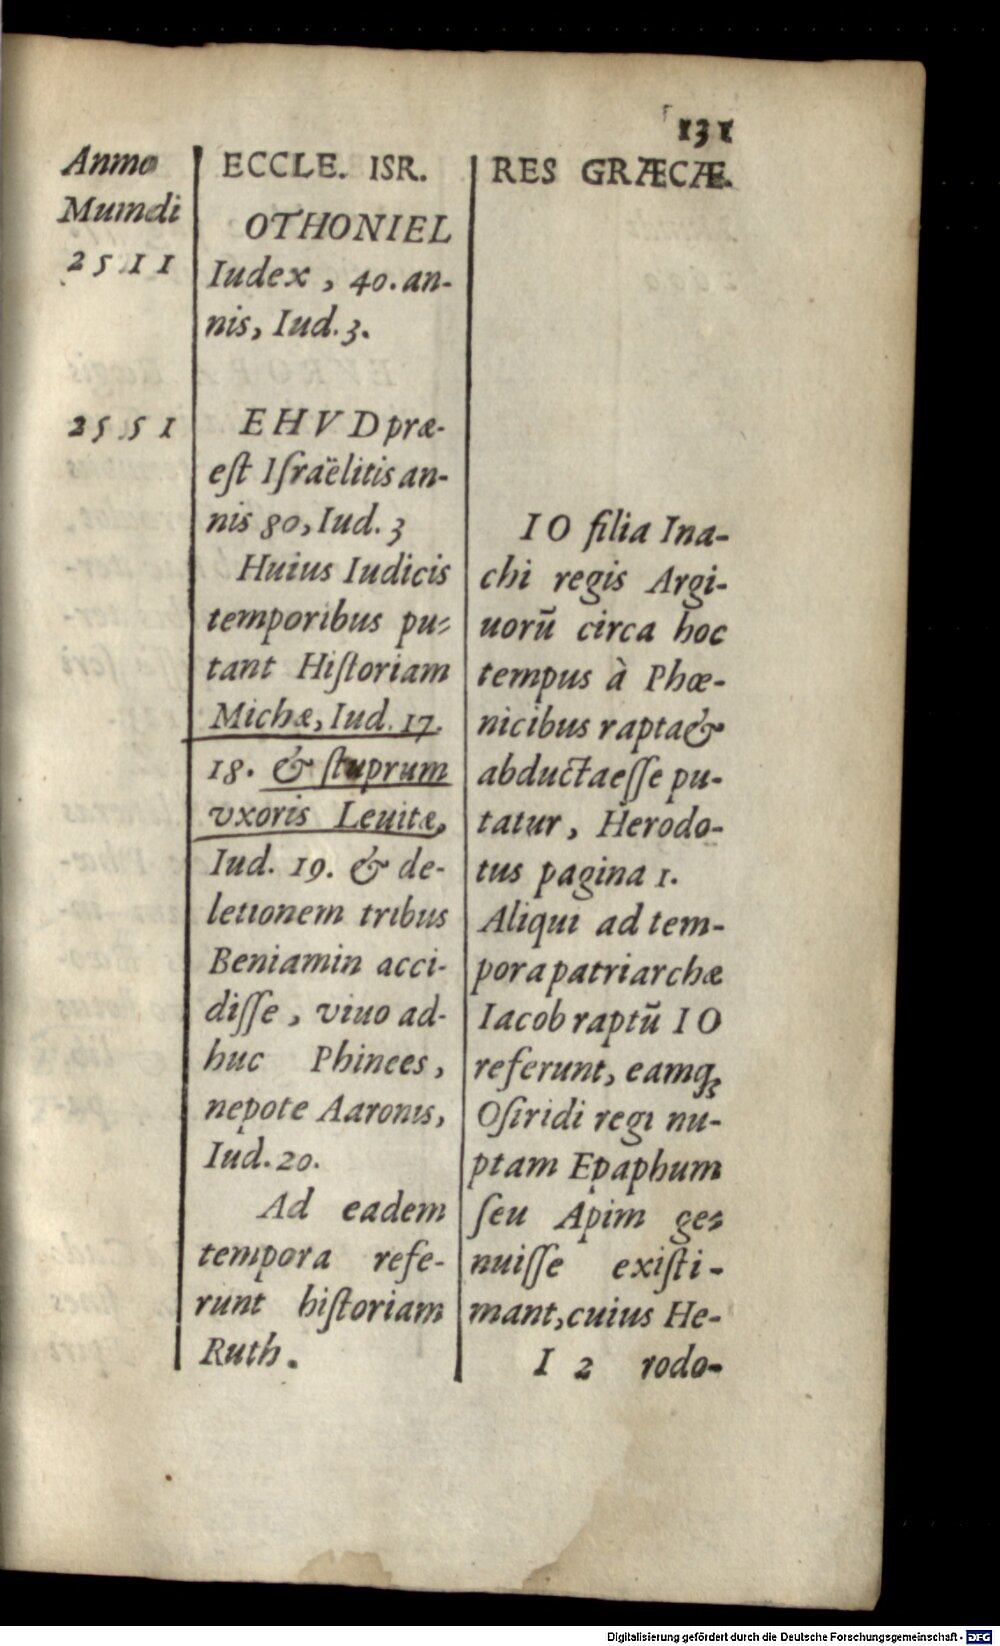 131
Anno
Mundi
2511
2551
ECCLE. ISR.
OTHONIEL
Iudex, 40. an-
nis, Iud. 3.
EHVD præ-
est Iſraëlitis an-
nis 80, Iud. 3
Huius Iudicis
temporibus pu-
tant Hiſtoriam
Michæ, Iud. 17.
18. & ſtuprum
vxoris Leuitæ,
Iud. 19. & de-
letionem tribus
Beniamin acci-
diſſe, viuo ad-
huc Phinees,
nepote Aaronis,
Iud. 20.
Ad eadem
tempora refe-
runt hiſtoriam
Ruth.
RES GRÆCÆ.
IO filia Ina-
chi regis Argi-
uorū circa hoc
tempus à Phœ-
nicibus rapta &
abducta eſſe pu-
tatur, Herodo-
tus pagina 1.
Aliqui ad tem-
pora patriarchæ
Iacob raptū IO
referunt, eamq́;
Oſiridi regi nu-
ptam Epaphum
ſeu Apim ge-
nuiſſe exiſti-
mant, cuius He-
I 2 rodo-
Digitalisierung gefördert durch die Deutsche Forschungsgemeinschaft - DFG